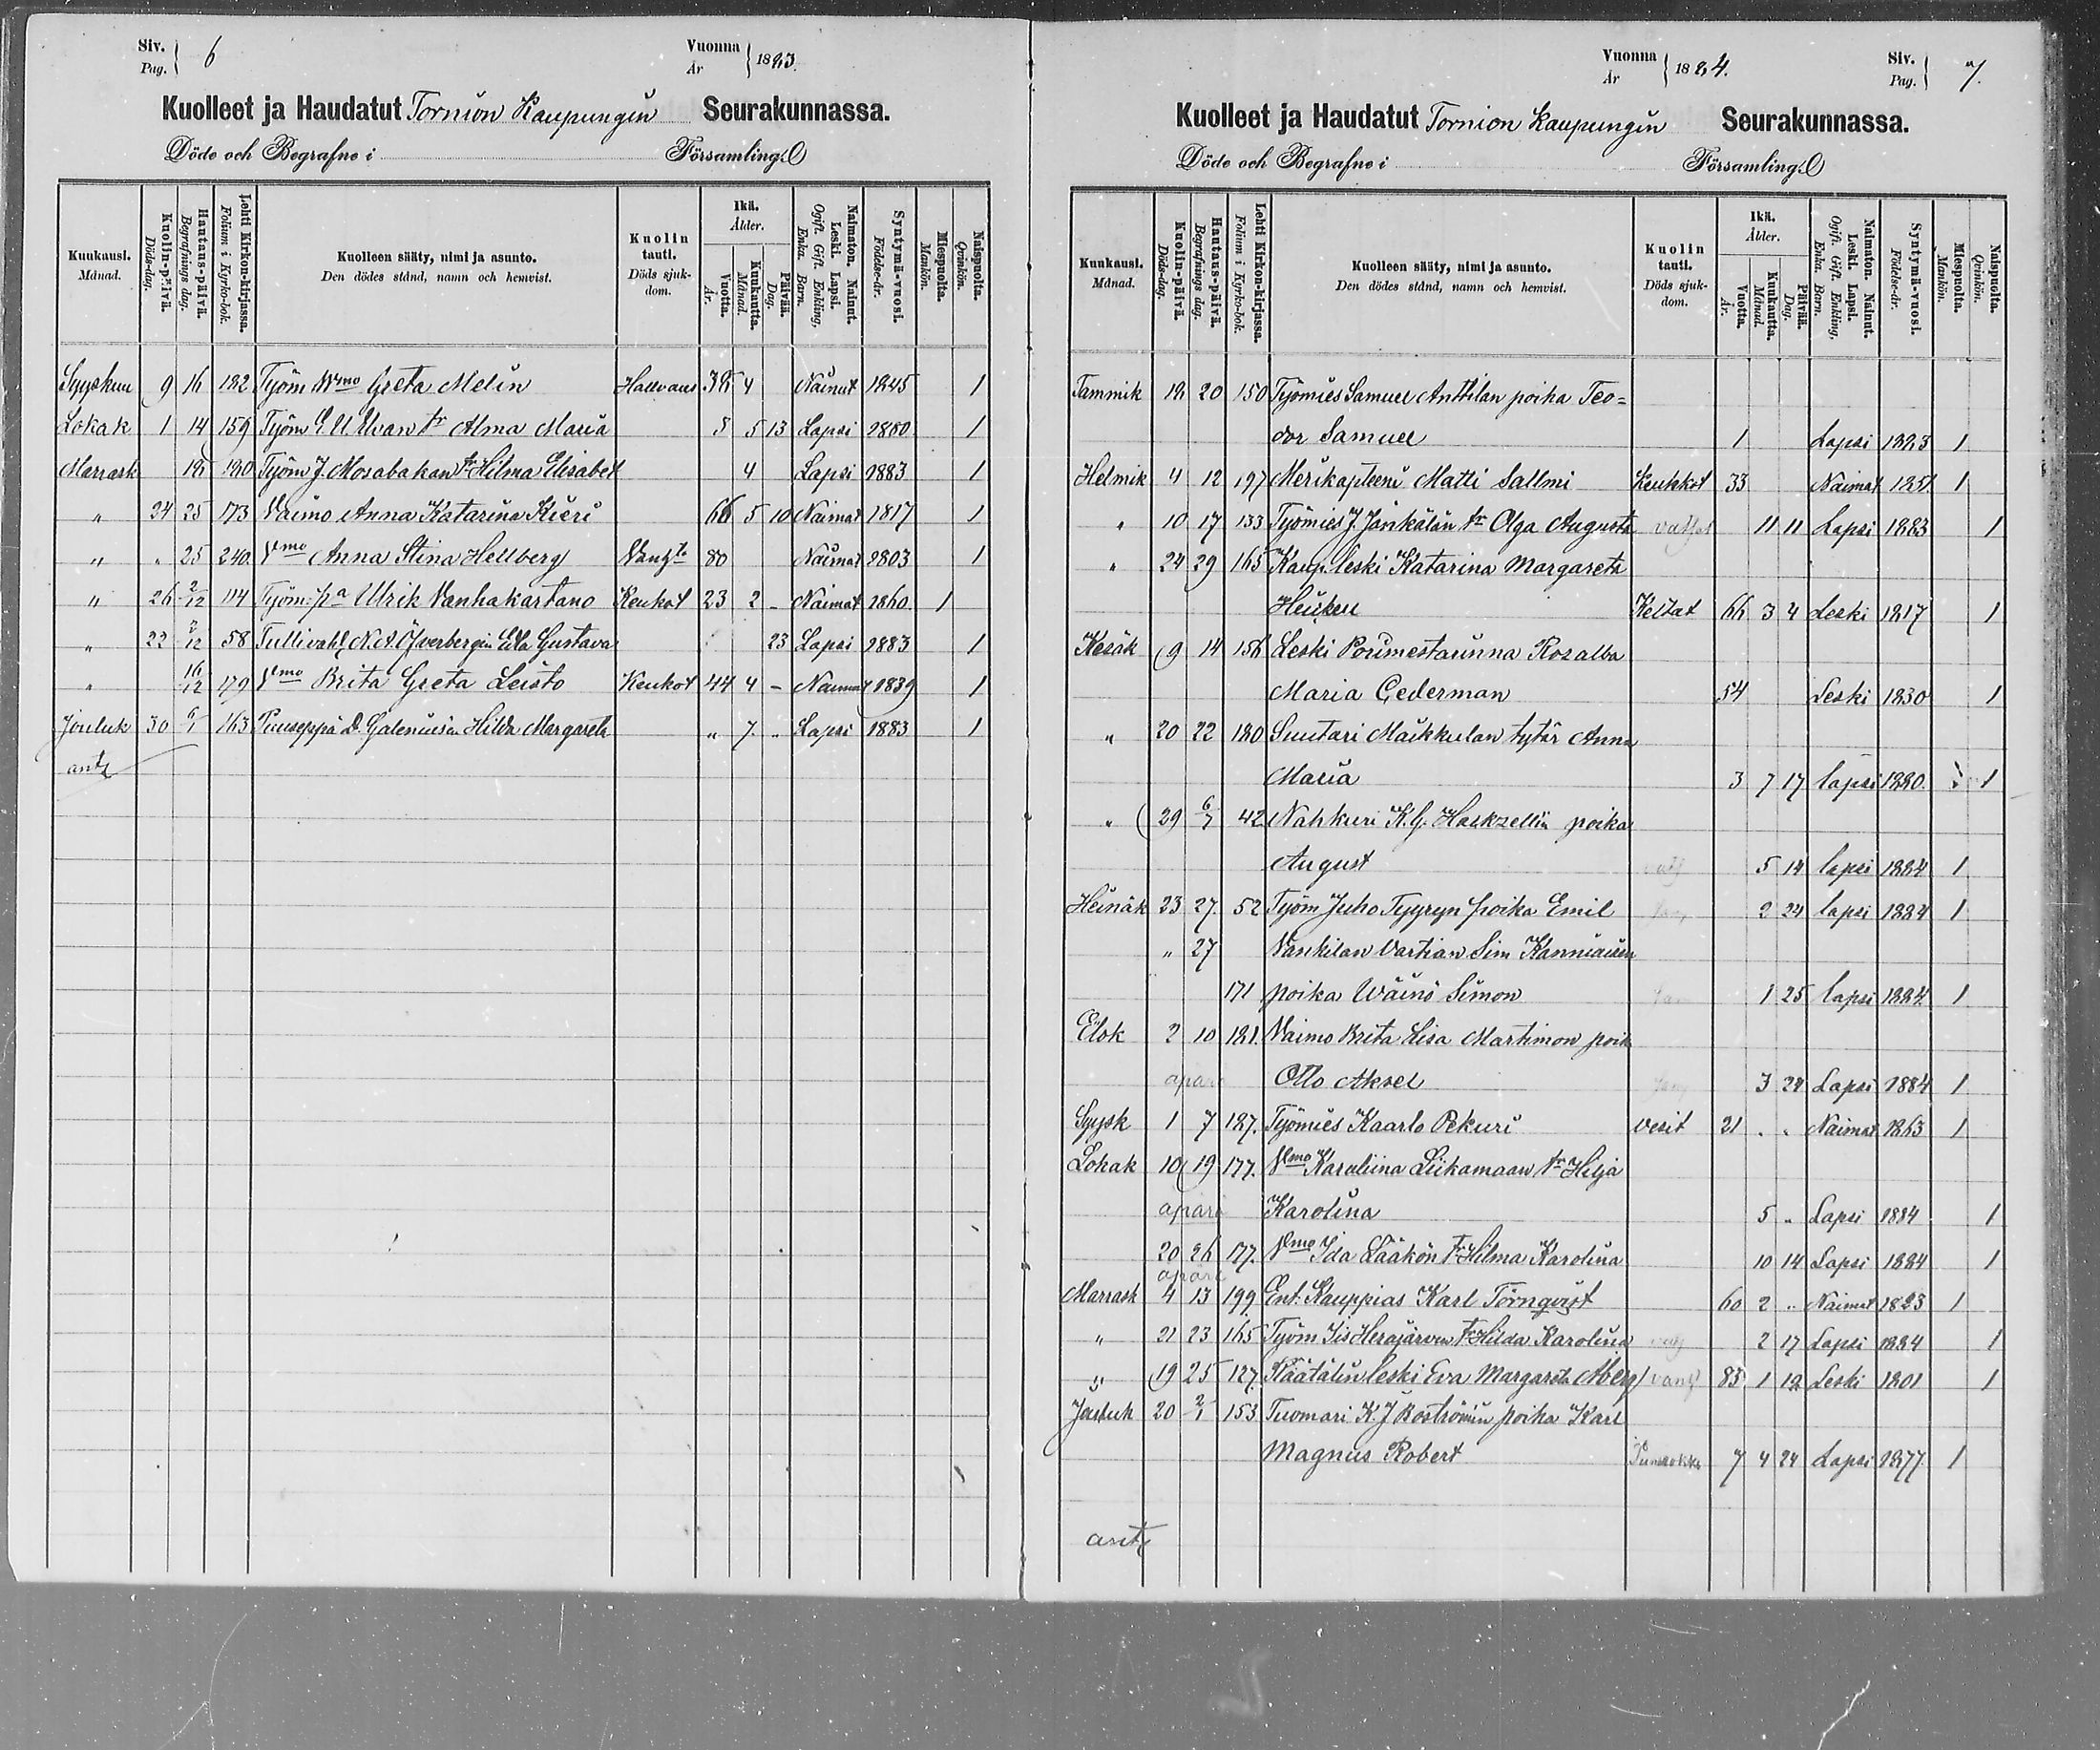 Siv. Pag. 6
Vuonna År 1883.
Kuolleet ja Haudatut Tornion Kaupungin Seurakunnassa.
Döde och Begrafne i Församling
Kuukausi. Månad.
Kuolin-päivä. Döds-dag.
Hautaus-päivä. Begrafnings dag.
Lehti Kirkon-kirjassa. Folium i Kyrko-bok.
Kuolleen sääty, nimi ja asunto. Den dödes stånd, namn och hemvist.
Kuolin tauti. Döds sjukdom.
Ikä. Ålder.
Vuotta. År.
Kuukautta. Månad.
Päivää. Dag.
Naimaton. Nainut. Leski. Lapsi. Ogift. Gift. Enkling, Enka. Barn.
Syntymä-vuosi. Födelse-år.
Miespuolta. Mankön.
Naispuolta. Qvinkön.
Syyskuu 9 16 182 Työm Wmo Greta Melin 38 4 Nainut 1845 1
Lokak 1 14 159 Työm tr Alma Maria 5 13 Lapsi 1880 1
Marrask 18 180 Työm J. Mosabakan tr Hilma Elisabet 4 Lapsi 1883 1
" 24 25 173 Vaimo Anna Katarina Kieri 66 5 10 Naimat 1817 1
" " 25 240. Vmo Anna Stina Hellberg 80 Naimat 1803 1
" 26 2/12 114 Työm: pa Ulrik Vanhakartano Keukot 23 2 - Naimat 1860. 1
" 22 2/12 58 Tullivaht N.A. Öfverbergin Gustava 23 Lapsi 1883 1
" 16/12 179 Vmo Brita Greta Leisto Keukot 44 4 - Naimat 1839 1
Jouluk 30 6/1 163 Puuseppä D. Galeniusin Hilda Margareta " 7 " Lapsi 1883 1
Siv. Pag. 7.
Vuonna År 1884.
Kuolleet ja Haudatut Tornion Kaupungin Seurakunnassa.
Döde och Begrafne i Församling
Kuukausi. Månad.
Kuolin-päivä. Döds-dag.
Hautaus-päivä. Begrafnings dag.
Lehti Kirkon-kirjassa. Folium i Kyrko-bok.
Kuolleen sääty, nimi ja asunto. Den dödes stånd, namn och hemvist.
Kuolin tauti. Döds sjukdom.
Ikä. Ålder.
Vuotta. År.
Kuukautta. Månad.
Päivää. Dag.
Naimaton. Nainut. Leski. Lapsi. Ogift. Gift. Enkling, Enka. Barn.
Syntymä-vuosi. Födelse-år.
Miespuolta. Mankön.
Naispuolta. Qvinkön.
Tammik 18 20 150 Työmies Samuel Anttilan poika Teo=
dor Samuel 1 Lapsi 1883 1
Helmik 4 12 197 Merikapteeni Matti Sallmi Keuhkot 33 Naimat 1851 1
" 10 17 133 Työmies J. Jänkälän tr Olga Augusta 11 11 Lapsi 1883 1
" 24 29 165 Kaup. leski Katarina Margareta
Heiken Keltat 66 3 4 Leski 1817 1
Kesäk 9 14 156 Leski Porimestarinna Rosalba
Maria Cederman 54 Leski 1830 1
" 20 22 180 Suutari Maikkulan tytär Anna
Maria 3 7 17 lapsi 1880. 1
" 29 6/7 42 Nahkuri K.G. poika
August 5 14 lapsi 1884 1
Heinäk 23 27. 52 Työm Juho Tyyryn poika Emil 2 24 lapsi 1884 1
" 27 Vankilan Vartian Sim Kanniaisen
171 poika Wäinö Simon 1 25 lapsi 1884 1
Elok 2 10 181. Vaimo Brita Lisa Martimon poik
apara Otto Aksel 3 24 Lapsi 1884 1
Syysk 1 7 187. Työmies Kaarlo Pekuri vesit 21 " " Naimat 1863 1
Lokak 10 19 177. Vmo Karoliina Liikamaan tr Hilja
apara Karolina 5 " Lapsi 1884 1
20 26 177. Vmo Ida Lääkön tr Hilma Karolina 10 14 Lapsi 1884 1
apara
Marrask 4 13 199 Ent. Kauppias Karl Törnqvist 60 2 " Naimat 1823 1
" 21 23 165 Työm Iis Herajärven tr Hilda Karolina 2 17 Lapsi 1884 1
" 19 25 127. Räätälin leski Eva Margareta Åberg 83 1 19 Leski 1801 1
Jouluk 20 2/1 153 Tuomari K. J Boströmin poika Karl
Magnus Robert 7 4 24 Lapsi 1877 1